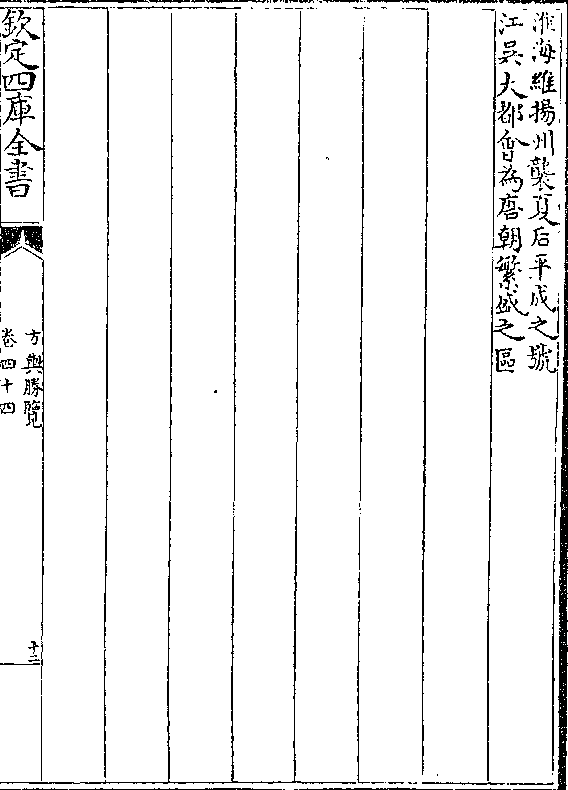 淮海維揚州襲夏后平成之號
江吳大都會為唐朝繁盛之區
欽定四庫全書
方輿勝覽
卷四十四
十二